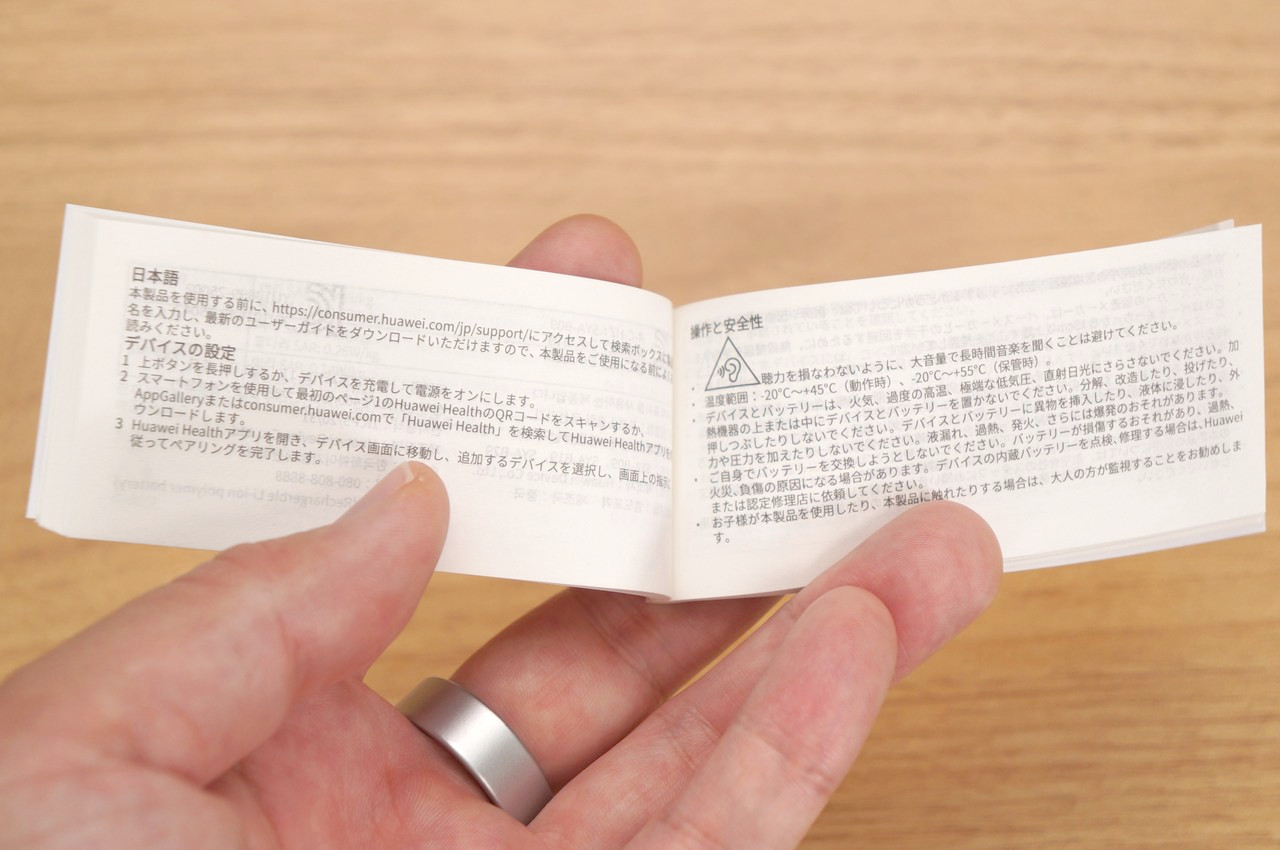 日本語
本製品を使用する前に、https://consumer.huawei.com/jp/support/にアクセスして検索ボックスに
名を入力し、最新のユーザーガイドをダウンロードいただけますので、本製品をご使用になる前に
読みください。
デバイスの設定
1 上ボタンを長押しするか、デバイスを充電して電源をオンにします。
2 スマートフォンを使用して最初のページ1のHuawei HealthのQRコードをスキャンするか、
AppGalleryまたはconsumer.huawei.comで「Huawei Health」を検索してHuawei Healthアプリを
ウンロードします。
3 Huawei Healthアプリを開き、デバイス画面に移動し、追加するデバイスを選択し、画面上の指示に
従ってペアリングを完了します。
操作と安全性
・ 聴力を損なわないように、大音量で長時間音楽を聞くことは避けてください。
・ 温度範囲：-20°C～+45°C（動作時）、-20°C～+55°C（保管時）.
・ デバイスとバッテリーは、火気、過度の高温、極端な低気圧、直射日光にさらさないでください。加
熱機器の上または中にデバイスとバッテリーを置かないでください。分解、改造したり、投げたり、
押しつぶしたりしないでください。デバイスとバッテリーに異物を挿入したり、液体に浸したり、外
力や圧力を加えたりしないでください。液漏れ、過熱、発火、さらには爆発のおそれがあります。
・ ご自身でバッテリーを交換しようとしないでください。バッテリーが損傷するおそれがあり、過熱、
火災､負傷の原因になる場合があります。デバイスの内蔵バッテリーを点検､修理する場合は､Huawei
または認定修理店に依頼してください。
・ お子様が本製品を使用したり、本製品に触れたりする場合は、大人の方が監視することをお勧めしま
す。